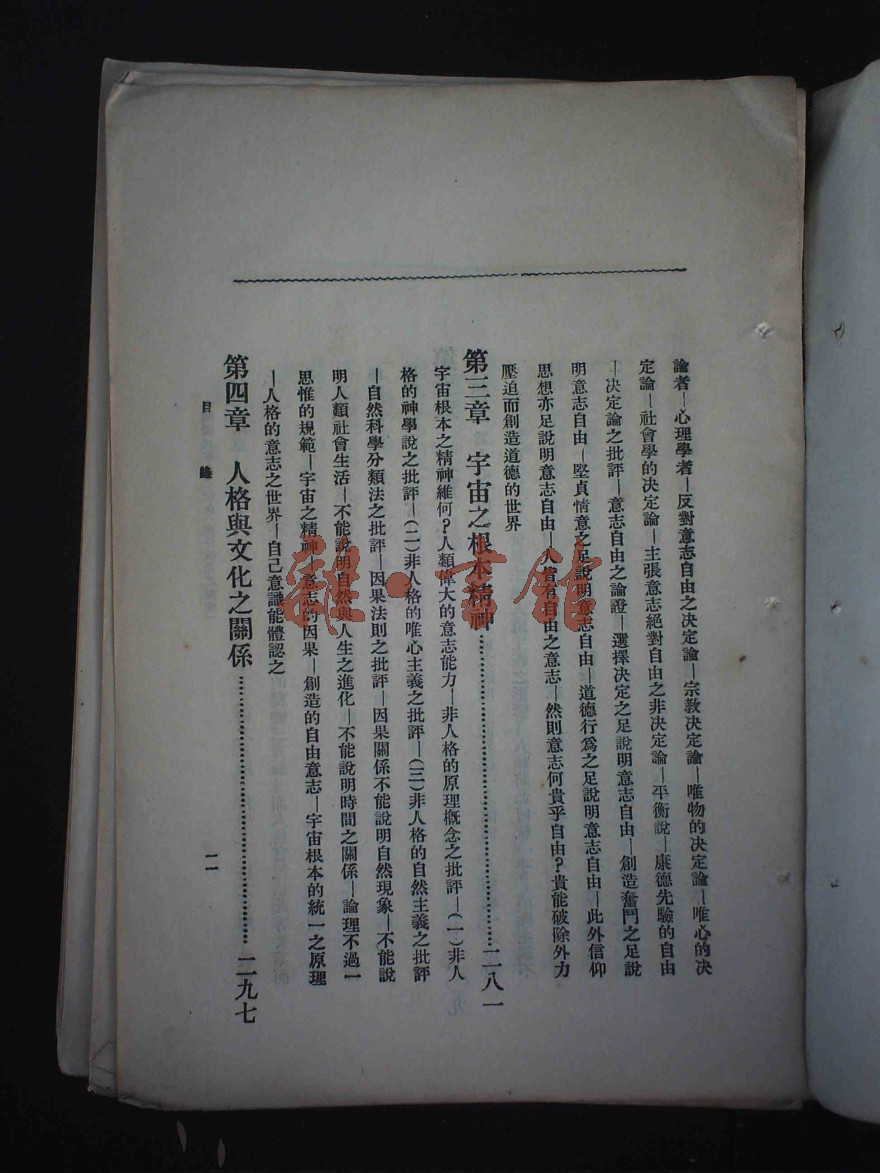 論者—心理學者—反對意志自由之決定論—宗教決定論—唯物的決定論—唯心的決
定論—社會學的決定論—主張意志絕對自由之非決定論—平衡說—康德先驗的自由
—決定論之批評—意志自由之論證—選擇決定之足說明意志自由—創造奮鬥之足說
明意志自由—堅貞情意之足說明意志自由—道德行爲之足說明意志自由—此外信仰
思想亦足說明意志自由—人皆有自由之意志—然則意志何貴乎自由?貴能破除外力
壓迫而創造道德的世界
第三章 宇宙之根本精神…………二八一
宇宙根本之精神維何?人類偉大的意志能力—非人格的原理概念之批評—(一)非人
格的神學說之批評—(二)非人格的唯心主義之批評—(三)非人格的自然主義之批評
—自然科學分類法之批評—因果法則之批評—因果關係不能說明自然現象—不能說
明人類社會生活—不能說明自然與人生之進化—不能說明時間之關係—論理不過一
思惟的規範—宇宙之精神—意志的因果—創造的自由意志—宇宙根本的統一之原理
—人格的意志之世界—自己意識能體認之
第四章 人格與文化之關係…………二九七
目錄
二
雜·書館